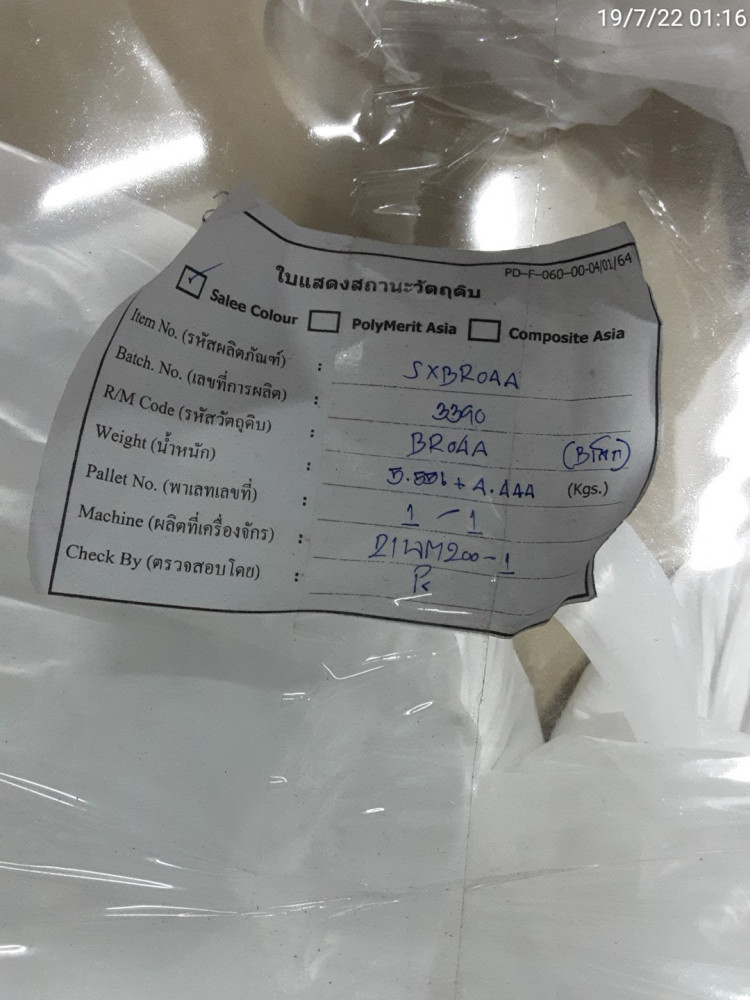 19/7/22 01:16
PD-F-060-00-04/01/64
ใบแสดงสถานะวัตถุดิบ
Salee Colour PolyMerit Asia Composite Asia
Item No. (รหัสผลิตภัณฑ์) : SXBR04A
Batch. No. (เลขที่การผลิต) : 3390
R/M Code (รหัสวัตถุดิบ) : BR04A
Weight (น้ำหนัก) : + 4.444 (Kgs.)
Pallet No. (พาเลทเลขที่) : 1 - 1
Machine (ผลิตที่เครื่องจักร) : 200-1
Check By (ตรวจสอบโดย) :